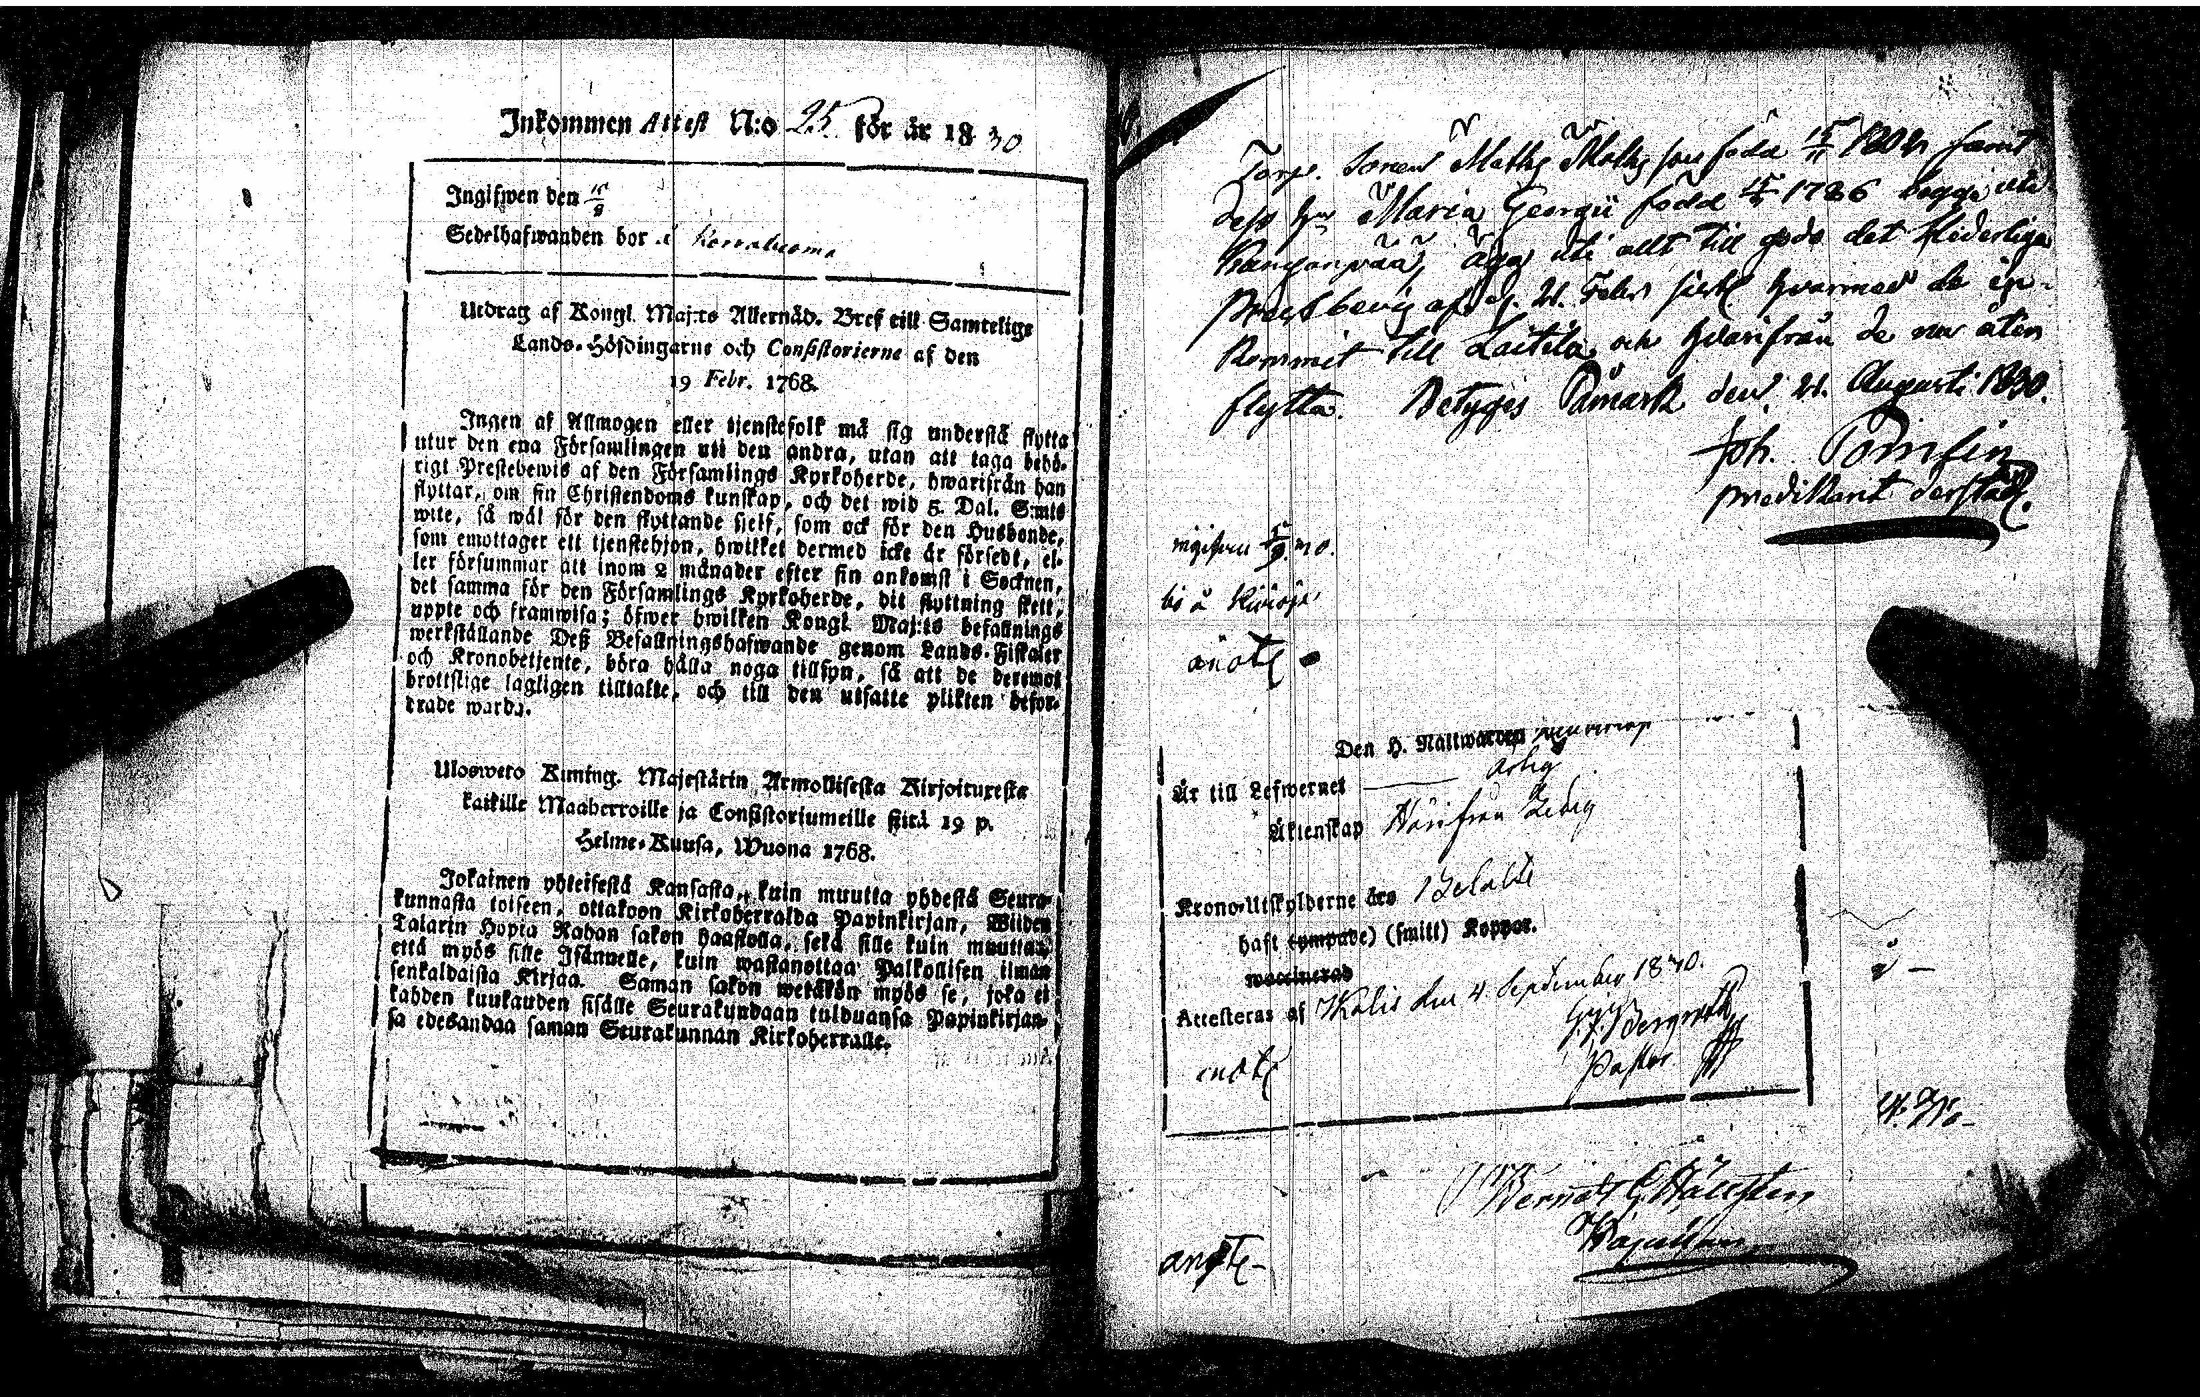 Inkommen Attest N:o 25 för år 1830
Ingifwen den 15/9
Sedelhafwanden bor i
Utdrag af Kongl. Maj:ts Allernåd. Bref till Samtelige
Lands-Höfdingarne och Consistorierne af den
19 Febr. 1768.
Ingen af Allmogen eller tjenstefolk må sig understå flytta
utur den ena Församlingen uti den andra, utan att taga behö-
rigt Prestebewis af den Församlings Kyrkoherde, hwarifrån han
flyttar, om sin Christendoms kunskap, och det wid 5. Dal. S:mts
wite, så wäl för den flyttande sjelf, som ock för den Husbonde,
som emottager ett tjenstehjon, hwilket dermed icke är försedt, el-
ler försummar att inom 2 månader efter sin ankomst i Socknen,
det samma för den Församlings Kyrkoherde, dit flyttning skett,
uppte och framwisa; öfwer hwilken Kongl. Maj:ts befallnings
werkställande Deß Befallningshafwande genom Lands-Fiskaler
och Kronobetjente, böra hålla noga tillsyn, så att de deremot
brottslige lagligen tilltalte, och till den utsatte plikten befor-
drade warda.
Ulosweto Kuning. Majestätin Armollisesta Kirjoituxesta
kaikille Maaherroille ja Consistoriumeille siitä 19 p.
Helme-Kuusa, Wuona 1768.
Jokainen yhteisestä Kansasta, kuin muutta yhdestä Seura-
kunnasta toiseen, ottakoon Kirkoherralda Papinkirjan, Wiiden
Talarin Hopia Rahan sakon haastolla, sekä sille kuin muuttaa,
että myös sille Isännelle, kuin wastanottaa Palkollisen ilman
senkaldaista Kirjaa. Saman sakon wetäkön myös se, joka ei
kahden kuukauden sisälle Seurakundaan tulduansa Papinkirjan-
sa edesandaa saman Seurakunnan Kirkoherralle.
Torp. Sonen Matts Matts son född 15/11 180 samt
dess hu Maria Georgii född 15/ 1786 begge uti
Kanganpää, äga uti allt till godo det hederliga
Prestbevis af d. 21. Febr hvarmed de in-
kommit till Laitila och hvarifrån de nu åter
flytta. Betyges Påmark den 21. Augusti 1830.
Joh.
predikant derstäd.
ingifven 15/9 30.
bo å
anote
Den H. Nattwarden
Är till Lefwernet ärlig
Äktenskap Härifrån Ledig
Krono-Utskylderne års Betalte
haft (ympade) (smitt) Koppor.
waccinerad
Attesteras af den 4 September 1830.
Bergroth
Pastor
anote
anote